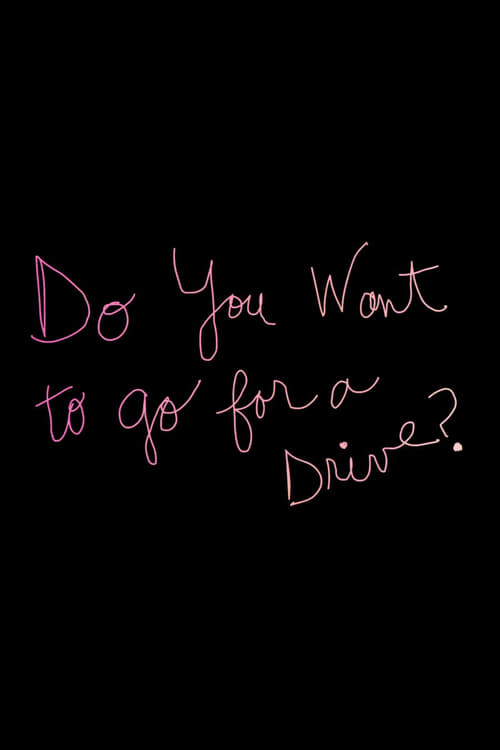 Do You Want
to go for a
Drive?